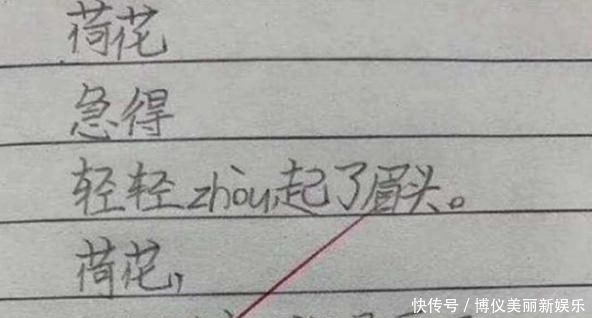 荷花
急得
轻轻zhòu起了眉头。
荷花,
快传号 / 博仪美丽新娱乐